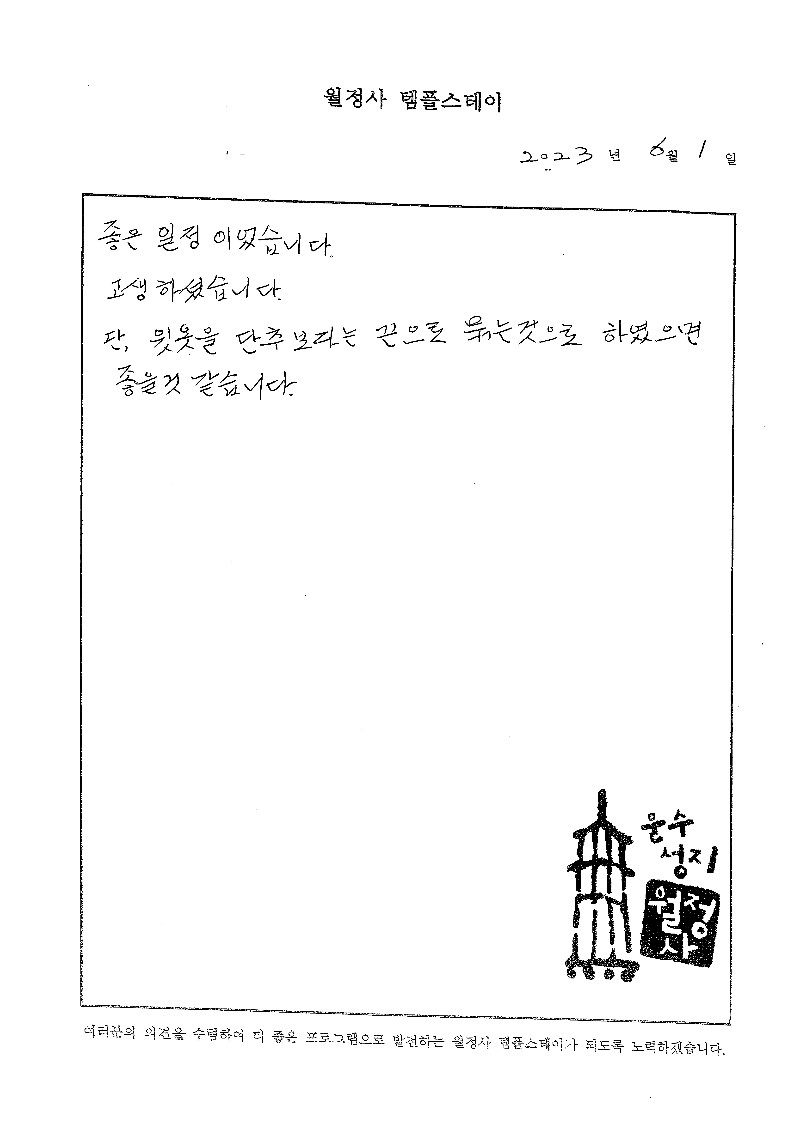 월정사 템플스테이
2023 년 6월 1 일
좋은 일정 이었습니다.
고생하셨습니다.
단, 윗옷을 단추보다는 끈으로 묶는것으로 하였으면
좋을것 같습니다.
문수
성지
월정
사
여러분의 의견을 수렴하여 더 좋은 프로그램으로 발전하는 월정사 템플스테이가 되도록 노력하겠습니다.